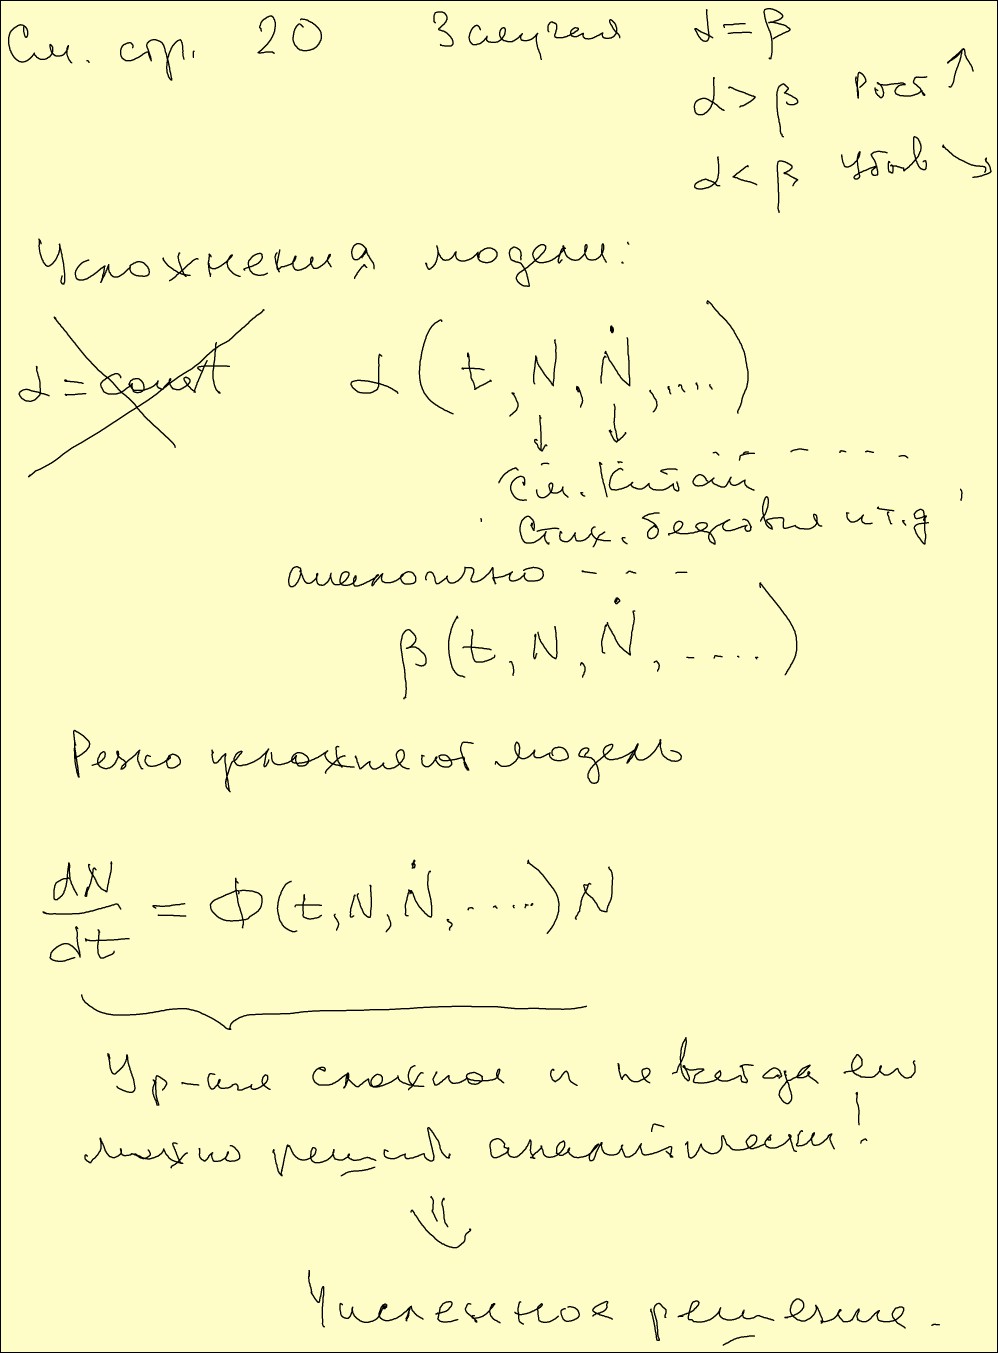 См. стр. 20 3 случая α = β
α > β Рост ↑
α < β Убыв ↘
Усложнения модели:
α = const α ( t, N, Ṅ, .... )
↓ ↓ - - - - -
См. Китай
Стих. бедствия и т.д
аналогично - - -
β (t, N, Ṅ, ....)
Резко усложняют модель
dN/dt = Φ (t, N, Ṅ, .....) N
Ур-ние сложное и не всегда его
можно решить аналитически!
⇓
Численное решение.